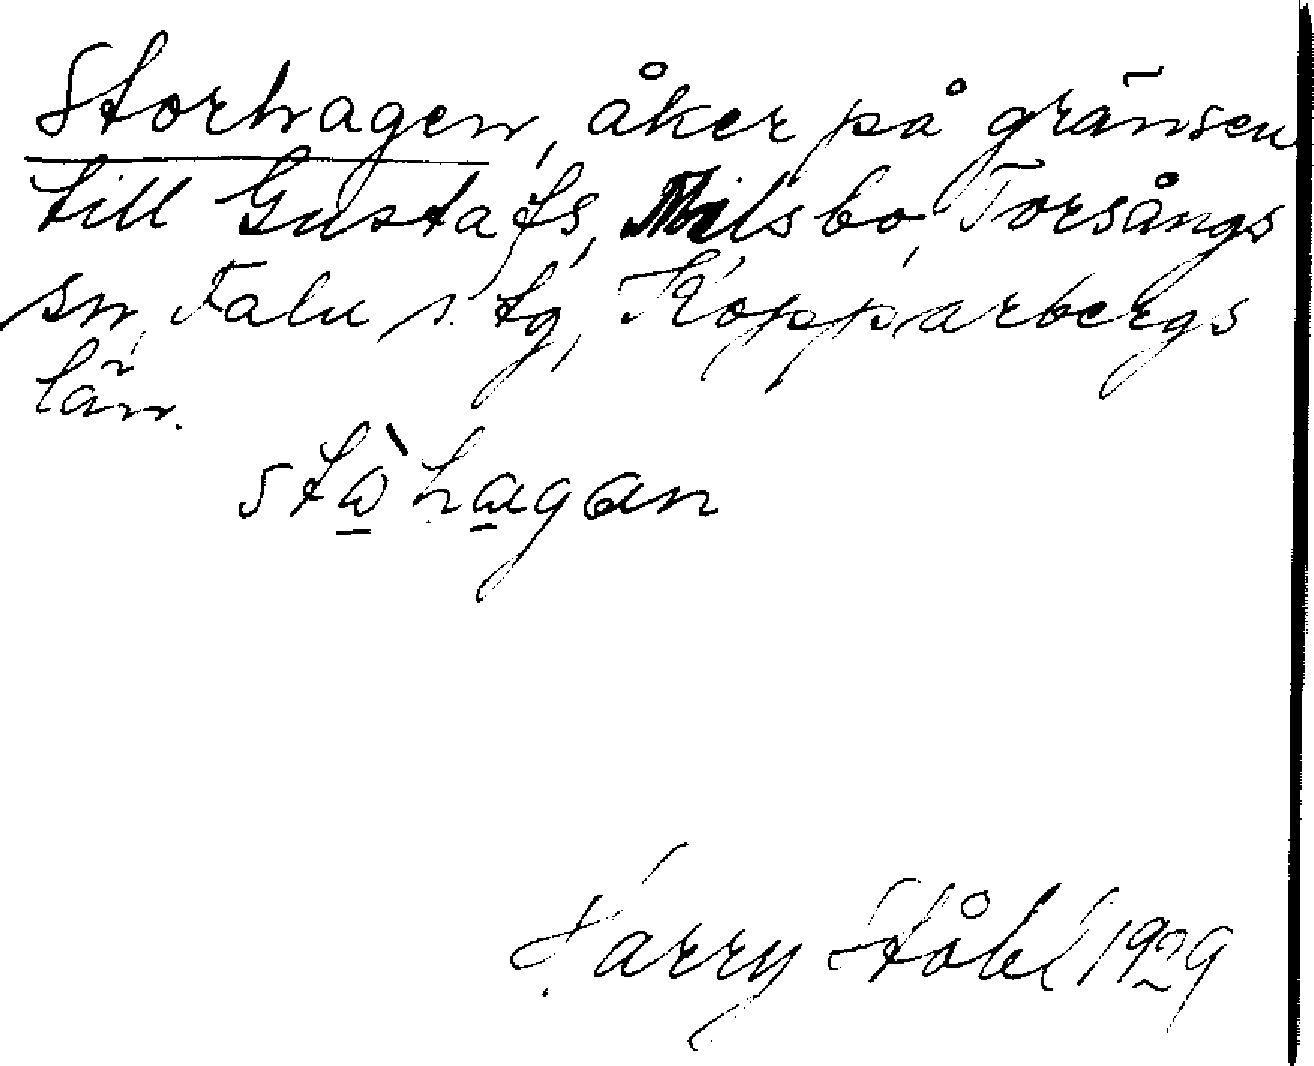 Storhagen, åker på gränsen
till Gustafs, Milsbo, Torsångs
sn, Falu s. tg, Kopparbergs
län.
stὼhagan
Harry Ståhl 1929